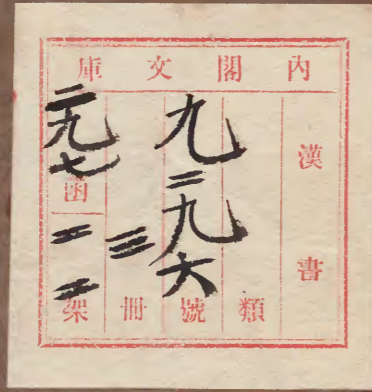 內閣文庫
漢書
類
九二九六號
三冊
二九七函
二二架